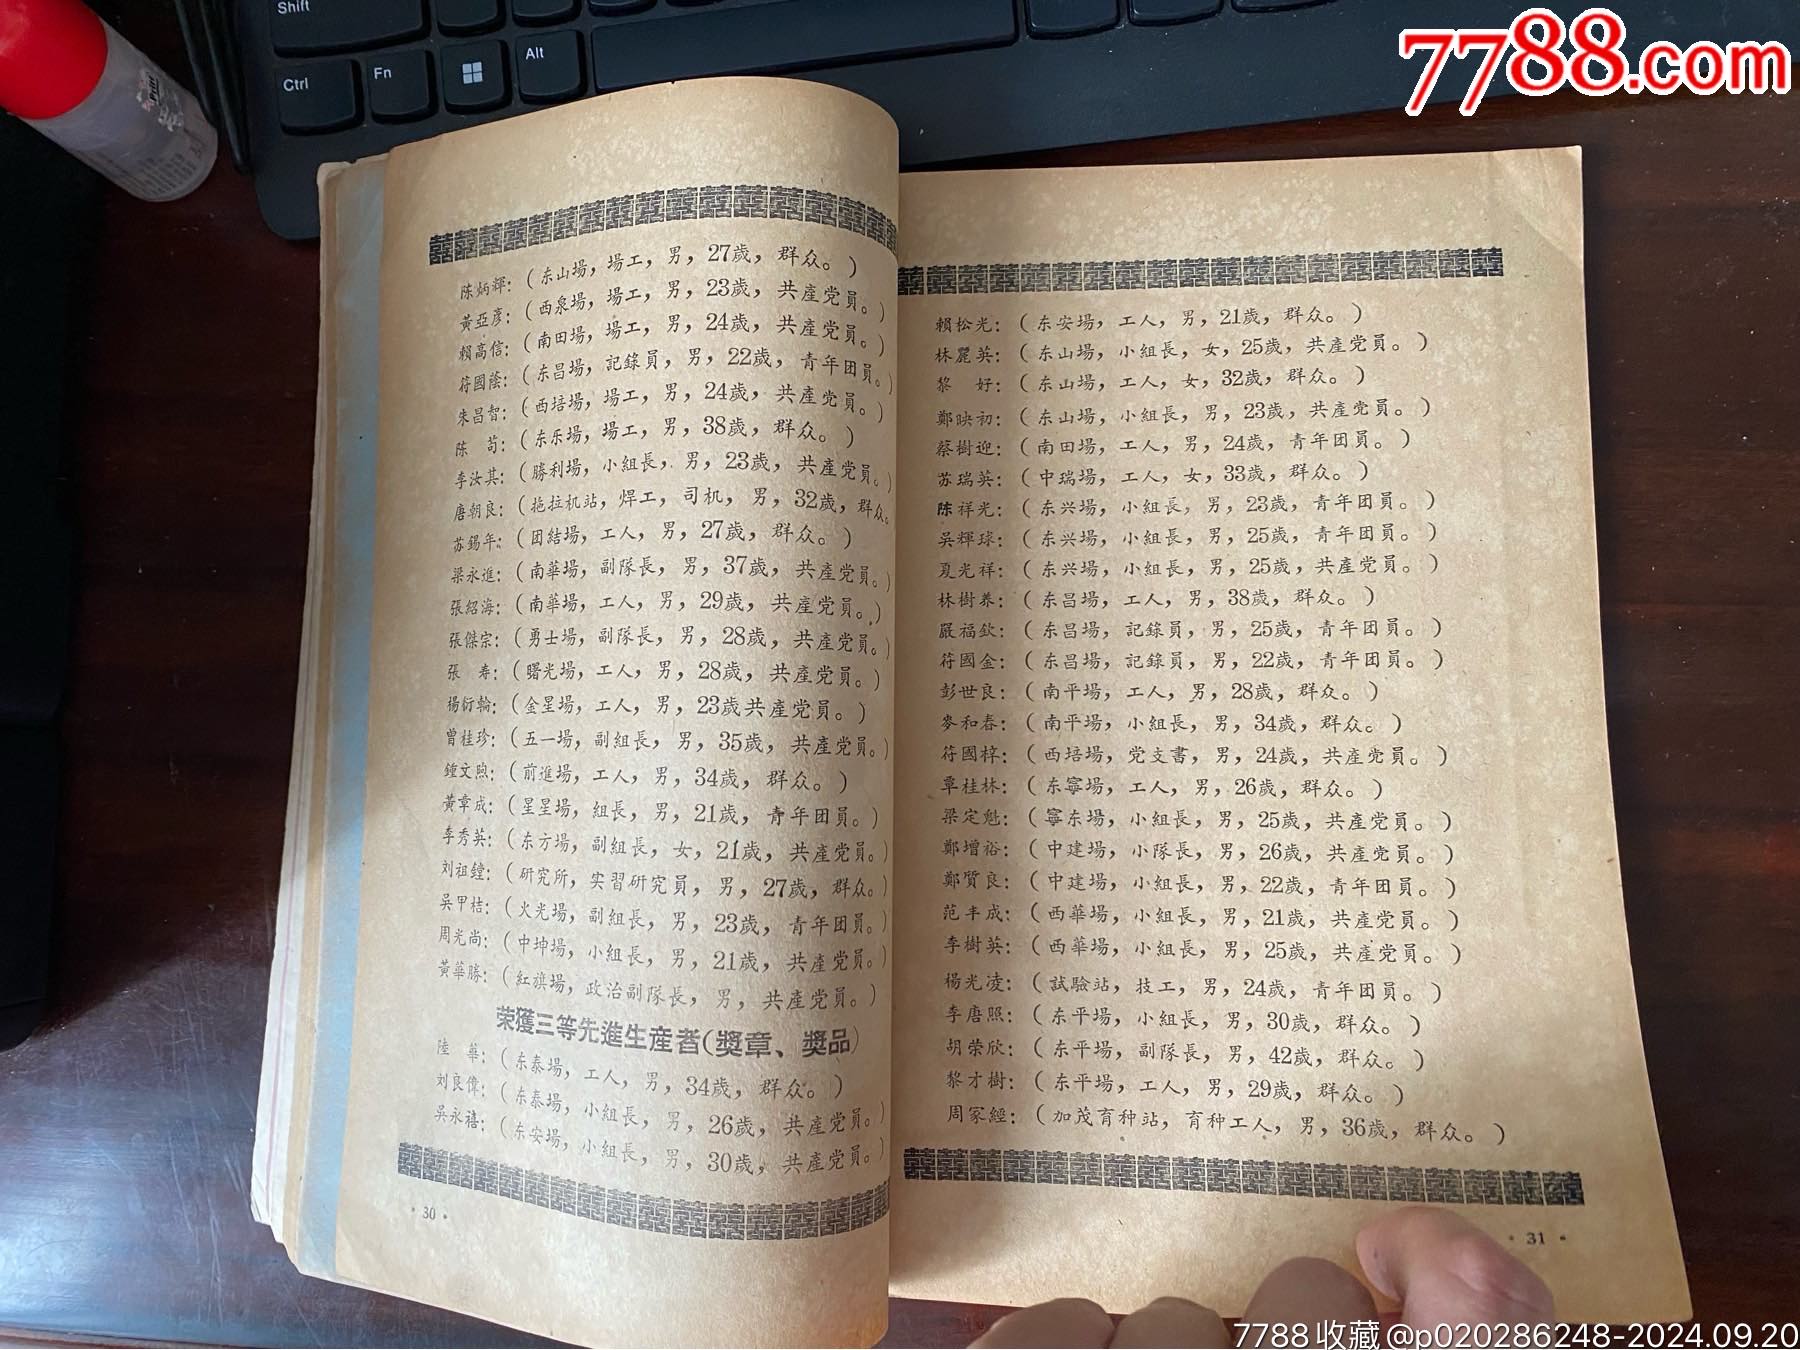 Shift
Ctrl
Fn
Alt
7788.com
陈炳輝：（东山場，場工，男，27歲，群众。）
黃亞彥：（西泉場，場工，男，23歲，共產党員。）
賴高信：（南田場，場工，男，24歲，共產党員。）
符國蔭：（东昌場，記錄員，男，22歲，青年团員。）
朱昌智：（西培場，場工，男，24歲，共產党員。）
陈　苟：（东乐場，場工，男，38歲，群众。）
李汝其：（勝利場，小組長，男，23歲，共產党員。）
唐朝良：（拖拉机站，焊工，司机，男，32歲，群众。
苏錫年：（团結場，工人，男，27歲，群众。）
梁永進：（南華場，副隊長，男，37歲，共產党員。）
張紹海：（南華場，工人，男，29歲，共產党員。）
張傑宗：（勇士場，副隊長，男，28歲，共產党員。）
張　寿：（曙光場，工人，男，28歲，共產党員。）
楊衍輪：（金星場，工人，男，23歲共產党員。）
曾桂珍：（五一場，副組長，男，35歲，共產党員。）
鍾文煦：（前進場，工人，男，34歲，群众。）
黃章成：（星星場，組長，男，21歲，青年团員。）
李秀英：（东方場，副組長，女，21歲，共產党員。）
刘祖鏜：（研究所，实習研究員，男，27歲，群众。）
吳甲桔：（火光場，副組長，男，23歲，青年团員。）
周光尚：（中坤場，小組長，男，21歲，共產党員。）
黃華勝：（紅旗場，政治副隊長，男，共產党員。）
荣獲三等先進生産者（獎章、獎品）
陸　華：（东泰場，工人，男，34歲，群众。）
刘良偉：（东泰場，小組長，男，26歲，共產党員。）
吳永禧：（东安場，小組長，男，30歲，共產党員。）
· 30 ·
賴松光：（东安場，工人，男，21歲，群众。）
林麗英：（东山場，小組長，女，25歲，共產党員。）
黎　好：（东山場，工人，女，32歲，群众。）
鄭映初：（东山場，小組長，男，23歲，共產党員。）
蔡樹迎：（南田場，工人，男，24歲，青年团員。）
苏瑞英：（中瑞場，工人，女，33歲，群众。）
陈祥光：（东兴場，小組長，男，23歲，青年团員。）
吳輝球：（东兴場，小組長，男，25歲，青年团員。）
夏光祥：（东兴場，小組長，男，25歲，共產党員。）
林樹养：（东昌場，工人，男，38歲，群众。）
嚴福欽：（东昌場，記錄員，男，25歲，青年团員。）
符國金：（东昌場，記錄員，男，22歲，青年团員。）
彭世良：（南平場，工人，男，28歲，群众。）
麥和春：（南平場，小組長，男，34歲，群众。）
符國梓：（西培場，党支書，男，24歲，共產党員。）
覃桂林：（东寧場，工人，男，26歲，群众。）
梁定魁：（寧东場，小組長，男，25歲，共產党員。）
鄭增裕：（中建場，小隊長，男，26歲，共產党員。）
鄭質良：（中建場，小組長，男，22歲，青年团員。）
范丰成：（西華場，小組長，男，21歲，共產党員。）
李樹英：（西華場，小組長，男，25歲，共產党員。）
楊光凌：（試驗站，技工，男，24歲，青年团員。）
李唐照：（东平場，小組長，男，30歲，群众。）
胡荣欣：（东平場，副隊長，男，42歲，群众。）
黎才樹：（东平場，工人，男，29歲，群众。）
周家經：（加茂育种站，育种工人，男，36歲，群众。）
· 31 ·
7788收藏@p020286248-2024.09.20